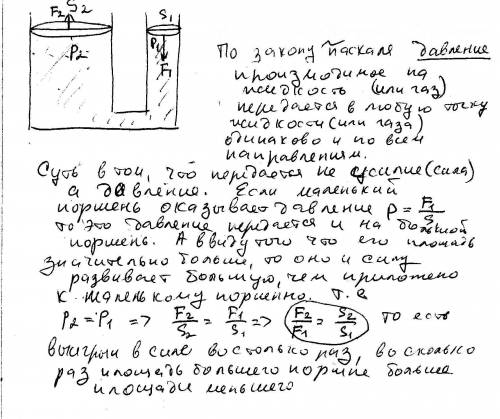 F2 S2
S1
P2
P1
F1
По закону Паскаля давление
производимое на
жидкость (или газ)
передается в любую точку
жидкости (или газа)
одинаково и по всем
направлениям.
Суть в том, что передается не усилие (сила)
а давление. Если маленький
поршень оказывает давление P = F1/S1
то это давление передается и на большой
поршень. А ввиду того что его площадь
значительно больше, то оно и силу
развивает большую, чем приложено
к маленькому поршню. т.е
P2 = P1 => F2/S2 = F1/S1 => F2/F1 = S2/S1 то есть
выигрыш в силе во столько раз, во сколько
раз площадь большего поршня больше
площади меньшего